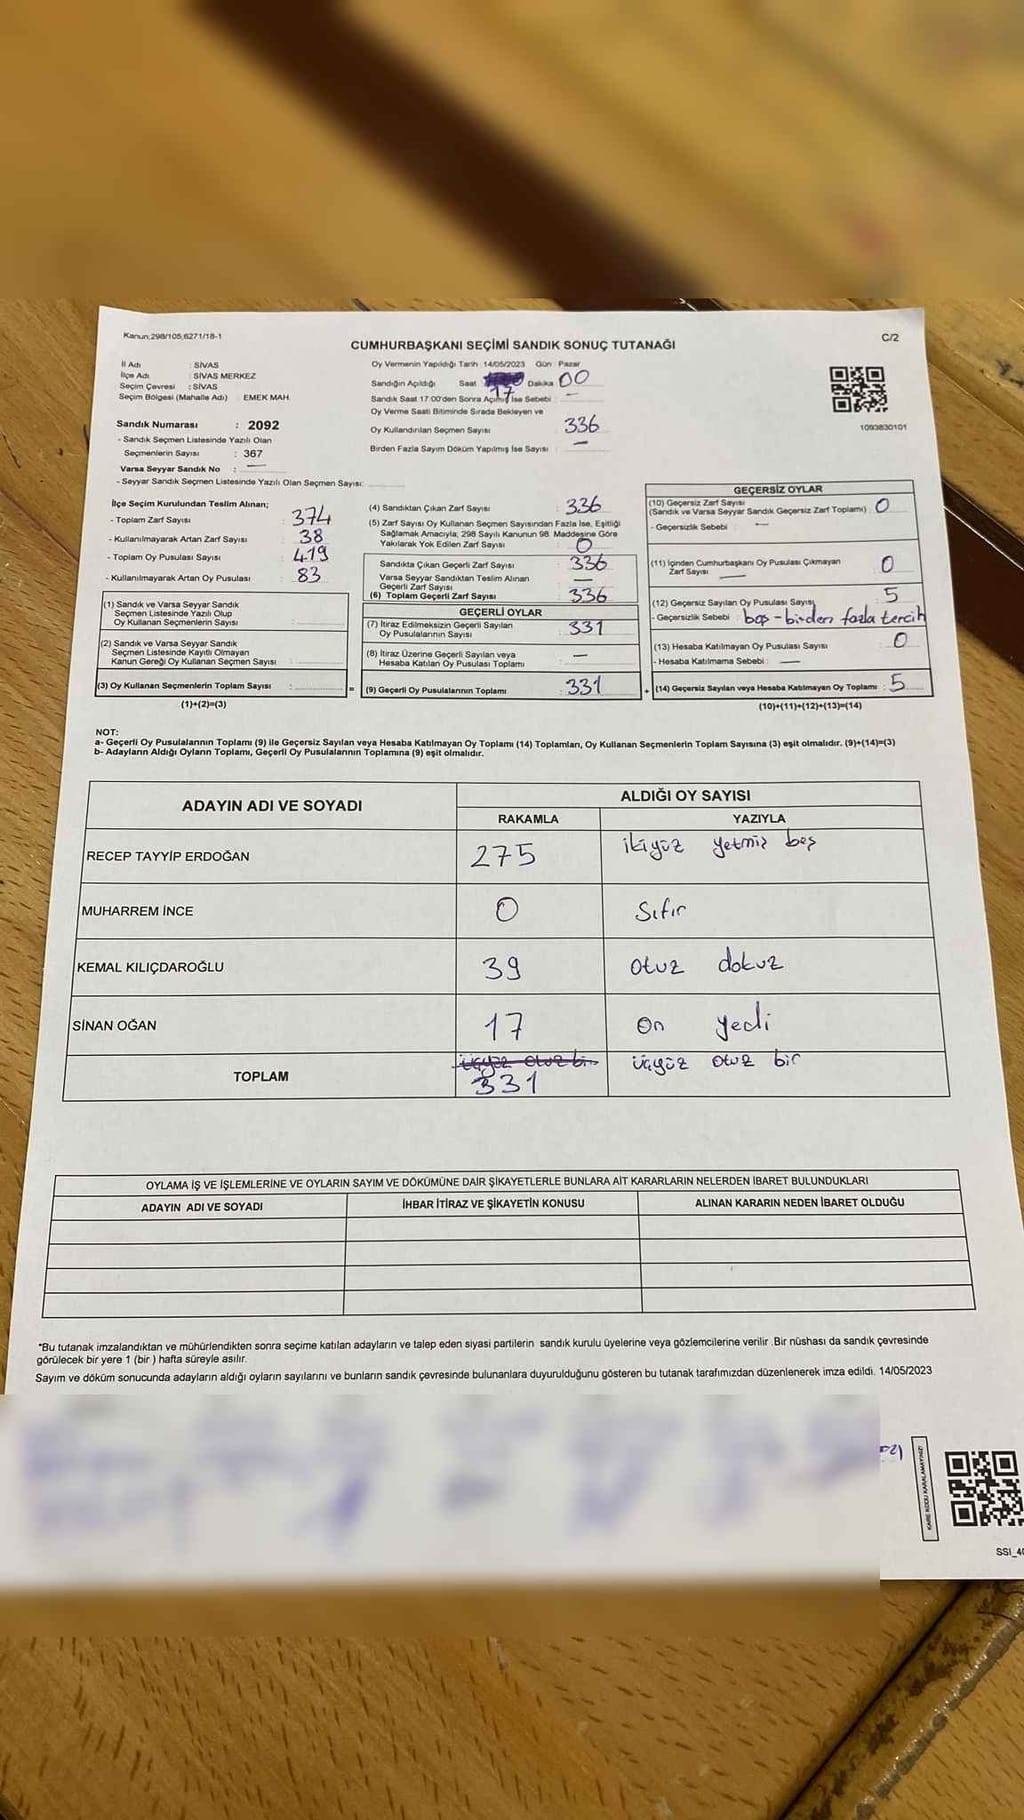 Kanun;298/105;6271/18-1
C/2
CUMHURBAŞKANI SEÇİMİ SANDIK SONUÇ TUTANAĞI
İl Adı : SİVAS
İlçe Adı : SİVAS MERKEZ
Seçim Çevresi : SİVAS
Seçim Bölgesi (Mahalle Adı) : EMEK MAH.
Sandık Numarası : 2092
- Sandık Seçmen Listesinde Yazılı Olan
Seçmenlerin Sayısı : 367
Varsa Seyyar Sandık No : —
- Seyyar Sandık Seçmen Listesinde Yazılı Olan Seçmen Sayısı:
Oy Vermenin Yapıldığı Tarih 14/05/2023 Gün : Pazar
Sandığın Açıldığı Saat 17 Dakika 00
Sandık Saat 17:00'den Sonra Açılmış İse Sebebi : —
Oy Verme Saati Bitiminde Sırada Bekleyen ve
Oy Kullandırılan Seçmen Sayısı : 336
Birden Fazla Sayım Döküm Yapılmış İse Sayısı : —
1093830101
İlçe Seçim Kurulundan Teslim Alınan;
- Toplam Zarf Sayısı : 374
- Kullanılmayarak Artan Zarf Sayısı : 38
- Toplam Oy Pusulası Sayısı : 419
- Kullanılmayarak Artan Oy Pusulası : 83
(1) Sandık ve Varsa Seyyar Sandık
Seçmen Listesinde Yazılı Olup
Oy Kullanan Seçmenlerin Sayısı :
(2) Sandık ve Varsa Seyyar Sandık
Seçmen Listesinde Kayıtlı Olmayan
Kanun Gereği Oy Kullanan Seçmen Sayısı :
(3) Oy Kullanan Seçmenlerin Toplam Sayısı :
(1)+(2)=(3)
(4) Sandıktan Çıkan Zarf Sayısı : 336
(5) Zarf Sayısı Oy Kullanan Seçmen Sayısından Fazla İse, Eşitliği
Sağlamak Amacıyla; 298 Sayılı Kanunun 98. Maddesine Göre
Yakılarak Yok Edilen Zarf Sayısı : 0
Sandıkta Çıkan Geçerli Zarf Sayısı : 336
Varsa Seyyar Sandıktan Teslim Alınan
Geçerli Zarf Sayısı : —
(6) Toplam Geçerli Zarf Sayısı : 336
GEÇERLİ OYLAR
(7) İtiraz Edilmeksizin Geçerli Sayılan
Oy Pusulalarının Sayısı : 331
(8) İtiraz Üzerine Geçerli Sayılan veya
Hesaba Katılan Oy Pusulası Toplamı : —
= (9) Geçerli Oy Pusulalarının Toplamı : 331
GEÇERSİZ OYLAR
(10) Geçersiz Zarf Sayısı
(Sandık ve Varsa Seyyar Sandık Geçersiz Zarf Toplamı) : 0
- Geçersizlik Sebebi : —
(11) İçinden Cumhurbaşkanı Oy Pusulası Çıkmayan
Zarf Sayısı : — 0
(12) Geçersiz Sayılan Oy Pusulası Sayısı : 5
- Geçersizlik Sebebi : boş - birden fazla tercih
(13) Hesaba Katılmayan Oy Pusulası Sayısı : 0
- Hesaba Katılmama Sebebi : —
+ (14) Geçersiz Sayılan veya Hesaba Katılmayan Oy Toplamı : 5
(10)+(11)+(12)+(13)=(14)
NOT:
a- Geçerli Oy Pusulalarının Toplamı (9) ile Geçersiz Sayılan veya Hesaba Katılmayan Oy Toplamı (14) Toplamları, Oy Kullanan Seçmenlerin Toplam Sayısına (3) eşit olmalıdır. (9)+(14)=(3)
b- Adayların Aldığı Oyların Toplamı, Geçerli Oy Pusulalarının Toplamına (9) eşit olmalıdır.
ADAYIN ADI VE SOYADI ALDIĞI OY SAYISI
RAKAMLA YAZIYLA
RECEP TAYYİP ERDOĞAN 275 ikiyüz yetmiş beş
MUHARREM İNCE 0 Sıfır
KEMAL KILIÇDAROĞLU 39 otuz dokuz
SİNAN OĞAN 17 on yedi
üçyüz otuz bir
TOPLAM 331 üçyüz otuz bir
OYLAMA İŞ VE İŞLEMLERİNE VE OYLARIN SAYIM VE DÖKÜMÜNE DAİR ŞİKAYETLERLE BUNLARA AİT KARARLARIN NELERDEN İBARET BULUNDUKLARI
ADAYIN ADI VE SOYADI İHBAR İTİRAZ VE ŞİKAYETİN KONUSU ALINAN KARARIN NEDEN İBARET OLDUĞU
"Bu tutanak imzalandıktan ve mühürlendikten sonra seçime katılan adayların ve talep eden siyasi partilerin sandık kurulu üyelerine veya gözlemcilerine verilir .Bir nüshası da sandık çevresinde
görülecek bir yere 1 (bir ) hafta süreyle asılır.
Sayım ve döküm sonucunda adayların aldığı oyların sayılarını ve bunların sandık çevresinde bulunanlara duyurulduğunu gösteren bu tutanak tarafımızdan düzenlenerek imza edildi. 14/05/2023
KARE KODU KARALAMAYINIZ!